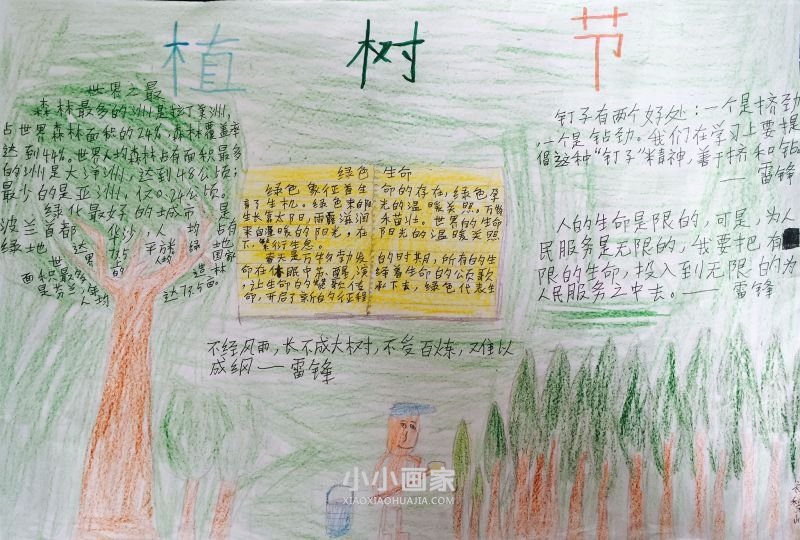 植树节
世界之最
森林最多的洲是拉丁美洲,
占世界森林面积的24%,森林覆盖率
达到44%。世界人均森林占有面积最多
的洲是大洋洲,达到48公顷;
最少的是亚洲,仅0.24公顷。
绿化最好的城市是
波兰首都华沙,人均占有
绿地达
绿色生命
绿色象征着生命的存在,绿色孕
育了生机。绿色来自阳光的温暖关照。万物
生长靠太阳,雨露滋润禾苗壮。世界的生命
来自温暖的阳光,在阳光的温暖关照
下,繁衍生息。
春天是万物勃发的时期,所有的生
命在休眠中苏醒,演绎着生命的公顷歌
,让生命的赞歌传承下去,绿色代表生
命,开启了新的征程
不经风雨,长不成大树,不受百炼,又难以
成纲——雷锋
钉子有两个好处:一个是挤劲
,一个是钻劲。我们在学习上要提
倡这种“钉子”精神,善于挤和钻
——雷锋
人的生命是限的,可是,为人
民服务是无限的,我要把有
限的生命,投入到无限的为
人民服务之中去。——雷锋
小小画家
XIAOXIAOHUAJIA.COM